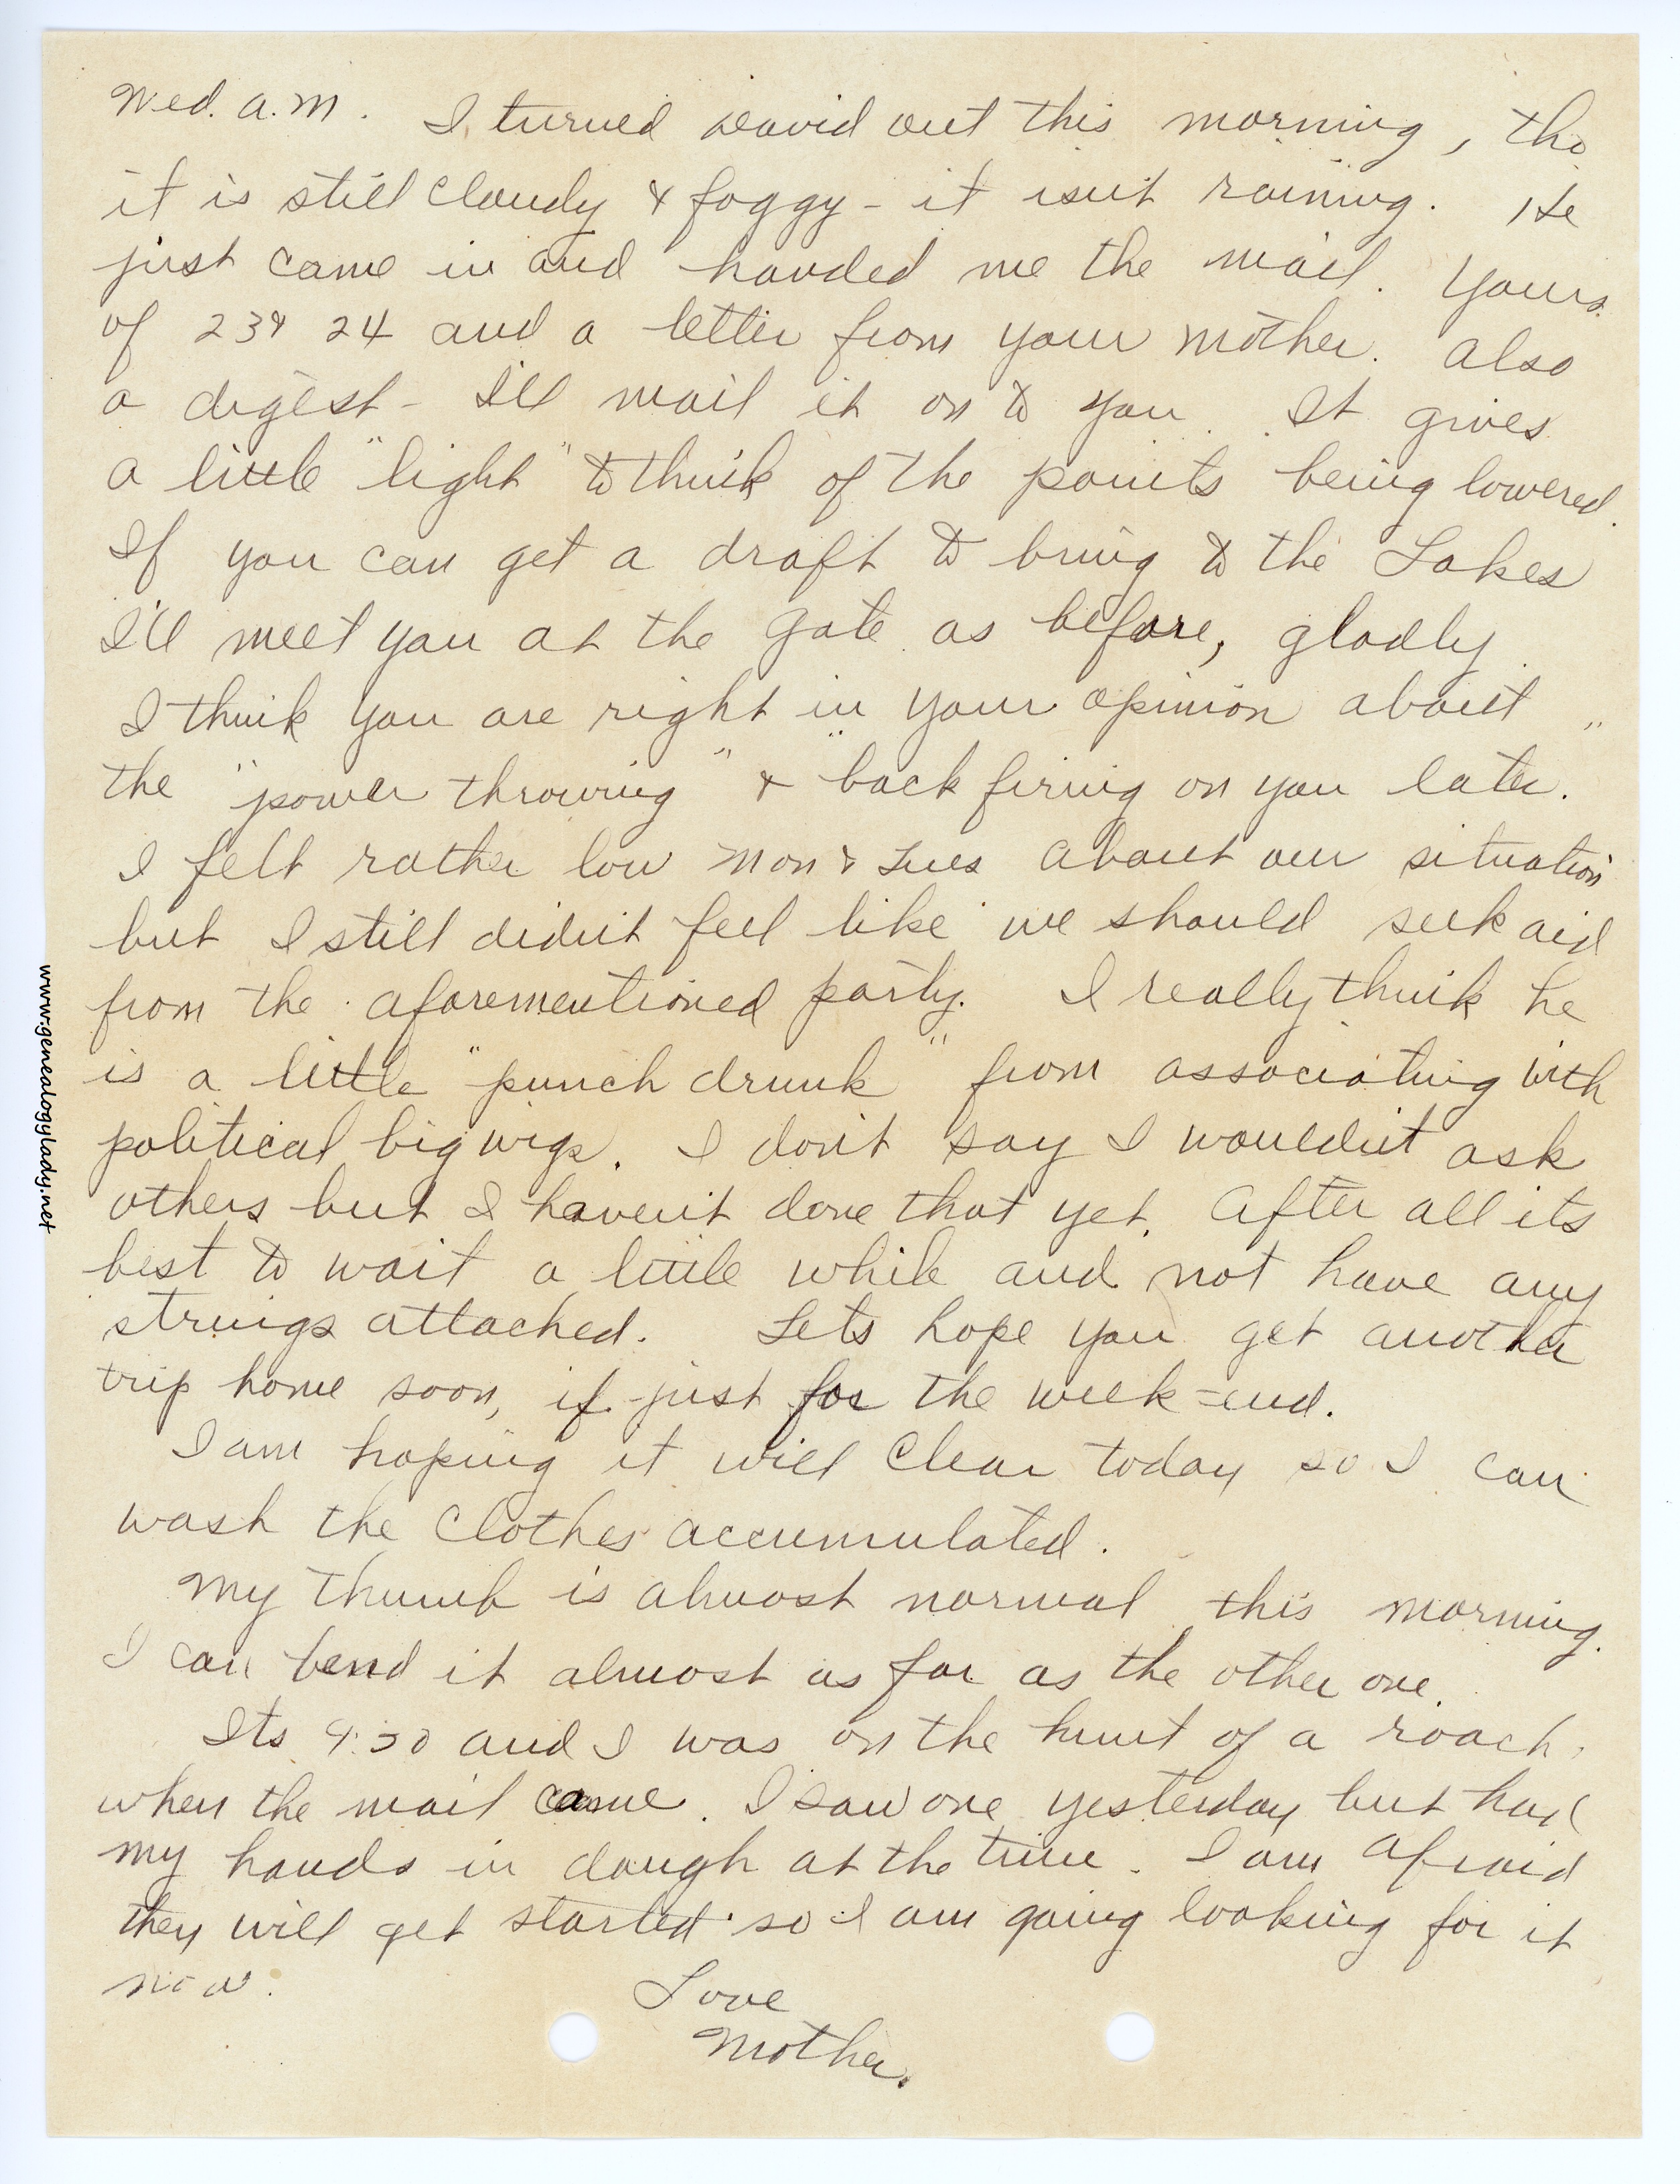 Wed. a.m. I turned David out this morning, tho
it is still cloudy & foggy - it isn't raining. He
just came in and handed me the mail. Yours
of 23 & 24 and a letter from your mother. Also
a digest - I'll mail it on to you. It gives
a little "light" to think of the points being lowered.
If you can get a draft to bring to the Lakes
I'll meet you at the gate as before, gladly.
I think you are right in your opinion about
the "power throwing" & "back firing on you later."
I felt rather low Mon & Tues about our situation
but I still didn't feel like we should seek aid
from the aforementioned party. I really think he
is a little "punch drunk" from associating with
political big wigs. I don't say I wouldn't ask
others but I haven't done that yet. After all its
best to wait a little while and not have any
strings attached. Lets hope you get another
trip home soon, if just for the week-end.
I am hoping it will clear today so I can
wash the clothes accumulated.
My thumb is almost normal this morning.
I can bend it almost as far as the other one.
Its 9:30 and I was on the hunt of a roach,
when the mail came. I saw one yesterday but had
my hands in dough at the time. I am afraid
they will get started so I am going looking for it
now.
Love
Mother.
www.genealogylady.net